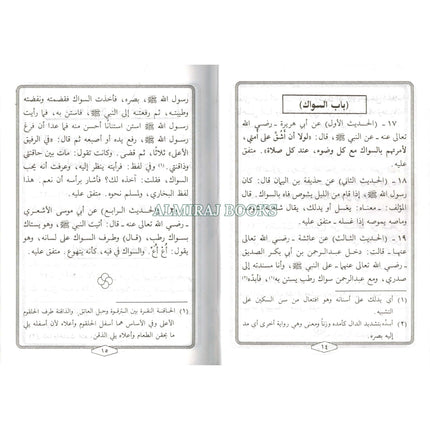 (باب السواك)
١٧ - (الحديث الأول) عن أبي هريرة - رضي الله
تعالى عنه - عن النبي ﷺ، قال: «لولا أن أشق على أمتي،
لأمرتهم بالسواك مع كل وضوء، عند كل صلاة»، متفق
عليه.
١٨ - (الحديث الثاني) عن حذيفة بن اليمان قال: كان
رسول الله ﷺ، إذا قام من الليل يشوص فاه بالسواك. قال
المؤلف - معناه: يغسل أو يدلك، يقال
وماصه يموصه إذا غسله - متفق عليه.
١٩ - (الحديث الثالث) عن عائشة - رضي الله تعالى
عنها - قالت: دخل عبدالرحمن بن أبي بكر الصديق
- رضي الله تعالى عنهما - على النبي ﷺ، وأنا مسندته إلى
صدري، ومع عبدالرحمن سواك رطب يستن به(١)، فأبده(٢)
(١) أي يدلك على أسنانه وهو افتعال من سن السكين على
(٢) أبده بتشديد الدال كأمده وزناً ومعنى وهي رواية أخرى أي مد
إليه بصره.
١٤
رسول الله ﷺ، بصره، فأخذت السواك فقضمته ونفضته
وطيبته، ثم دفعته إلى النبي ﷺ، فاستن به، فما رأيت
رسول الله ﷺ استن استناناً أحسن منه فما عدا أن فرغ
رسول الله ﷺ، رفع يده أو أصبعه ثم قال: «في الرفيق
الأعلى» ثلاثاً، ثم قضى. وكانت تقول: مات بين حاقنتي
وذاقنتي.(١) وفي لفظ، فرأيته ينظر إليه، وعرفت أنه يحب
السواك، فقلت: آخذه لك؟ فأشار برأسه أن نعم. هذا
لفظ البخاري، ولمسلم نحوه. متفق عليه.
(الحديث الرابع) عن أبي موسى الأشعري
قال: أتيت النبي ﷺ، وهو يستاك
بسواك رطب، (قال) وطرف السواك على لسانه، وهو
يقول: أع أع والسواك في فيه، كأنه يتهوع. متفق عليه.
(١) الحاقنة النقرة بين الترقوة وحبل العاتق. والذاقنة طرف الحلقوم
الأعلى وفي الأساس هما أسفل الحلقوم وأعلاه لأن أسفله يلي
ما يحقن الطعام وأعلاه يلي الذقن
١٥
ALMIRAJ BOOKS